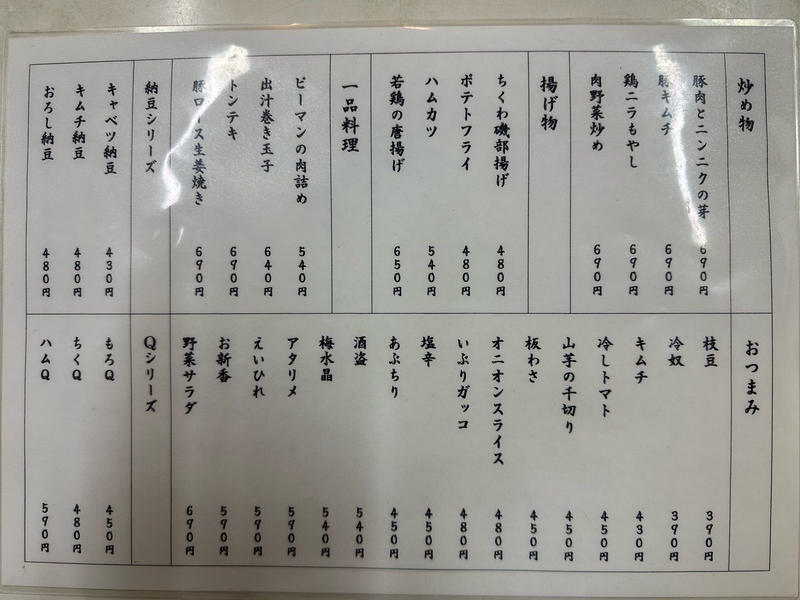 炒め物
豚肉とニンニクの芽 690円
豚キムチ 690円
鶏ニラもやし 690円
肉野菜炒め 690円
揚げ物
ちくわ磯部揚げ 480円
ポテトフライ 480円
ハムカツ 540円
若鶏の唐揚げ 650円
一品料理
ピーマンの肉詰め 540円
出汁巻き玉子 640円
トンテキ 690円
豚ロース生姜焼き 690円
納豆シリーズ
キャベツ納豆 430円
キムチ納豆 480円
おろし納豆 480円
おつまみ
枝豆 390円
冷奴 390円
キムチ 430円
冷しトマト 450円
山芋の千切り 450円
板わさ 450円
オニオンスライス 480円
いぶりガッコ 480円
塩辛 450円
あぶちり 450円
酒盗 540円
梅水晶 540円
アタリメ 590円
えいひれ 590円
お新香 590円
野菜サラダ 690円
Qシリーズ
もろQ 450円
ちくQ 480円
ハムQ 590円